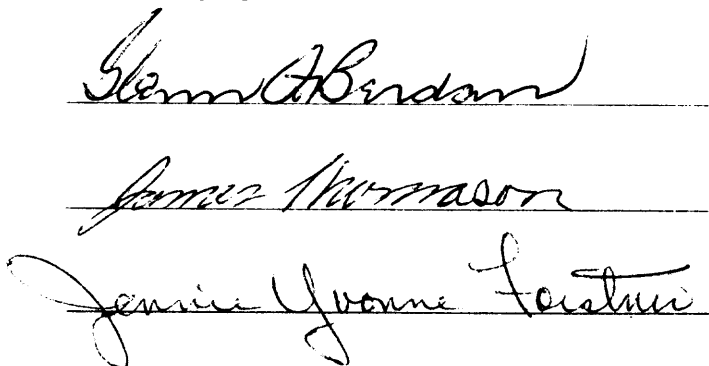 Glenn A. Berdan
James Thomason
Jennie Yvonne